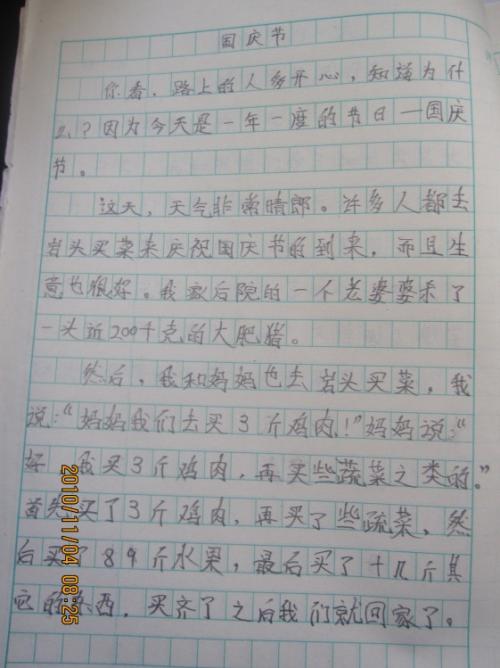 国庆节
你看，路上的人多开心，知道为什
么？因为今天是一年一度的节日—国庆
节。
这天，天气非常晴郎。许多人都去
岩头买菜来庆祝国庆节的到来，而且生
意也很好。我家后院的一个老婆婆杀了
一头近200千克的大肥猪。
然后，我和妈妈也去岩头买菜，我
说：“妈妈我们去买3斤鸡肉！”妈妈说：“
好，我买3斤鸡肉，再买些蔬菜之类的。”
首先买了3斤鸡肉，再买了些蔬菜，然
后买了89斤水果，最后买了十几斤其
它的东西，买齐了之后我们就回家了。
2010/11/04 08:25